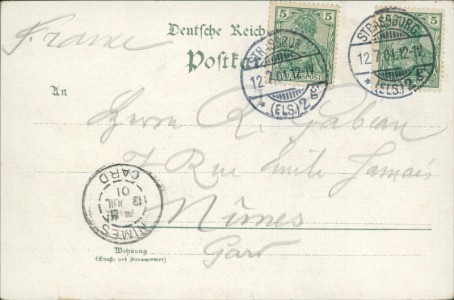 France
Deutsche Reich
Postkar
5
5
STRASSBURG
12.7.01.12-1N.
* (ELS.) 2 g
STRASSBURG
12.7.01.12-1N.
* (ELS.) 2 g
An
Herrn R. Fabian
7 Rue Emile Jamais
Nîmes
Gard
NIMES
13 JUIL
01
GARD
Wohnung
(Straße und Hausnummer)